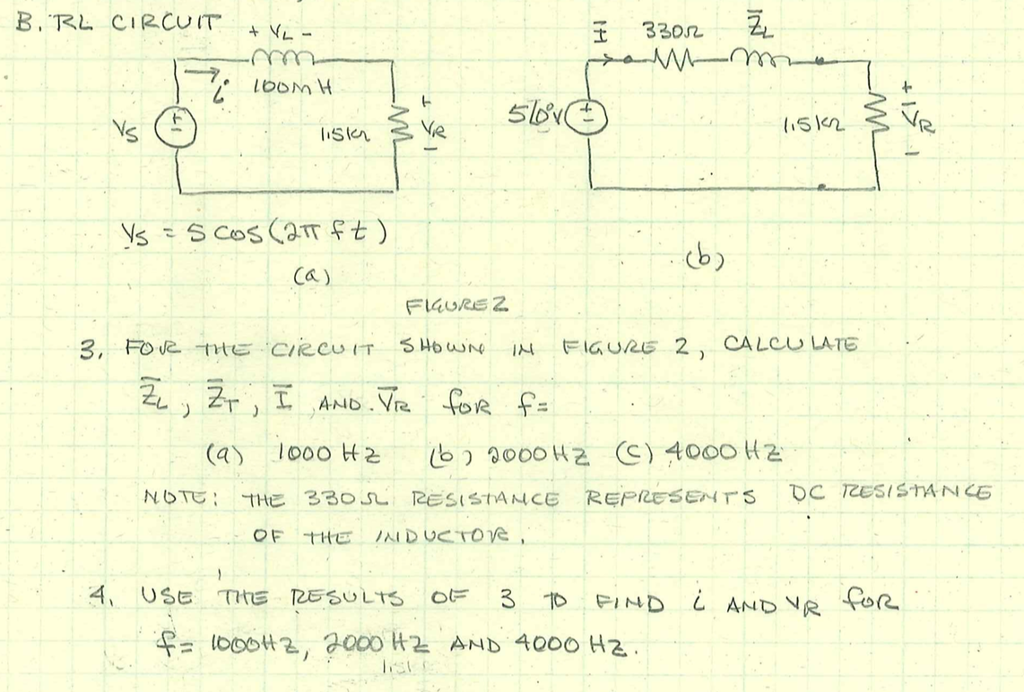 B. RL CIRCUIT
+ VL -
i
100mH
VS
+
-
1.5kΩ
+
VR
-
VS = 5 COS(2π f t)
(a)
I̅ 330Ω Z̅L
5∠0°V
+
-
1.5kΩ
+
V̅R
-
(b)
FIGURE 2
3. FOR THE CIRCUIT SHOWN IN FIGURE 2, CALCULATE
Z̅L, Z̅T, I̅ AND V̅R for f=
(a) 1000 HZ (b) 2000 HZ (c) 4000 HZ
NOTE: THE 330Ω RESISTANCE REPRESENTS DC RESISTANCE
OF THE INDUCTOR.
4. USE THE RESULTS OF 3 TO FIND i AND VR for
f= 1000HZ, 2000 HZ AND 4000 HZ.